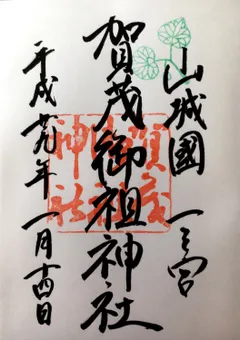 山城國 一之宮
賀茂御祖神社
平成廿九年一月十四日
賀茂
神社